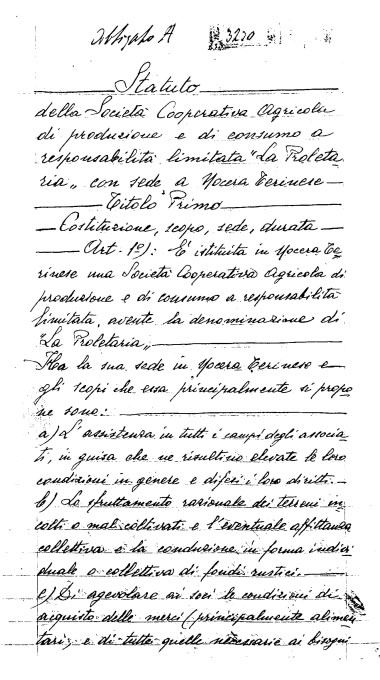 Allegato A 3270
Statuto
della Società Cooperativa Agricola
di produzione e di consumo a
responsabilità limitata "La Proleta
ria„ con sede a Nocera Terinese
Titolo Primo
Costituzione, scopo, sede, durata
Art. 1º): È istituita in Nocera Te
rinese una Società Cooperativa Agricola di
produzione e di consumo a responsabilità
limitata, avente la denominazione di
"La Proletaria„
Ha la sua sede in Nocera Terinese e
gli scopi che essa principalmente si propo
ne sono:
a) L'assistenza in tutti i campi degli associa
ti, in guisa che ne risultino elevate le loro
condizioni in genere e difesi i loro diritti.
b) Lo sfruttamento razionale dei terreni in
colti o mal coltivati e l'eventuale affittanza
collettiva o la conduzione in forma indivi
duale o collettiva di fondi rustici.
c) Di agevolare ai soci le condizioni di
acquisto delle merci (principalmente alimen
tari, e di tutte quelle necessarie ai bisogni